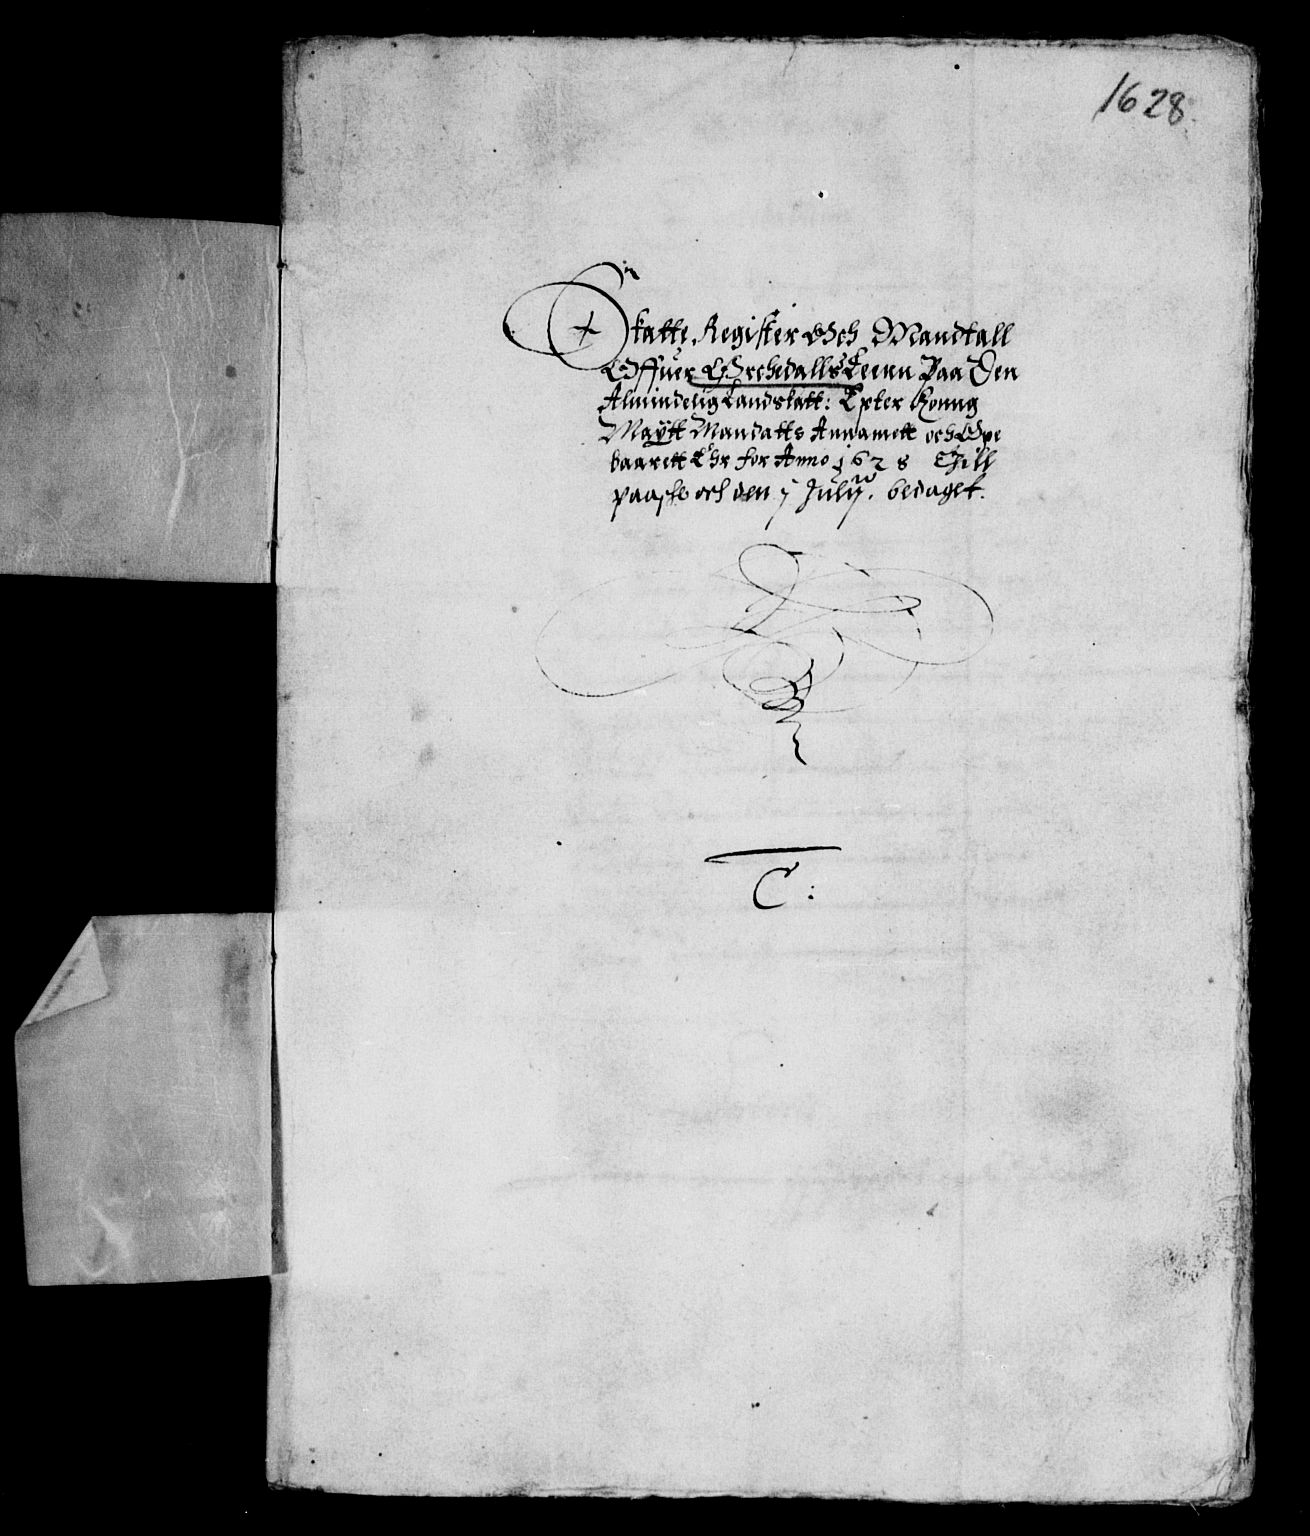 1628
Skatte Register Och Mandtall
Offuer Orchedalls Leenn Paa Den
Almindelig Landskatt: Epter Konng
Maÿtt Mandatts Annamett och Ope
baarett Ehr for Anno 1628 Thill
paaske och den Julÿ. bedaget.
C: